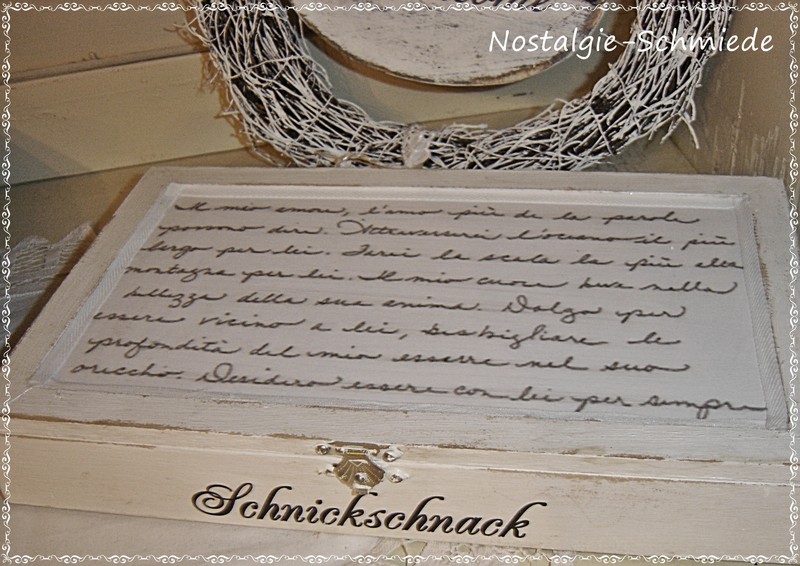 Nostalgie-Schmiede
Il mio amore, l'amo più de le parole
possono dire. Attraverserei l'oceano il più
largo per lei. Farei la scala la più alta
montagna per lei. Il mio cuore beve nella
bellezza della sua anima. Dolgo per
essere vicino a lei, bisbigliare le
profondità del mio essere nel suo
orecchio. Desidero essere con lei per sempre
Schnickschnack